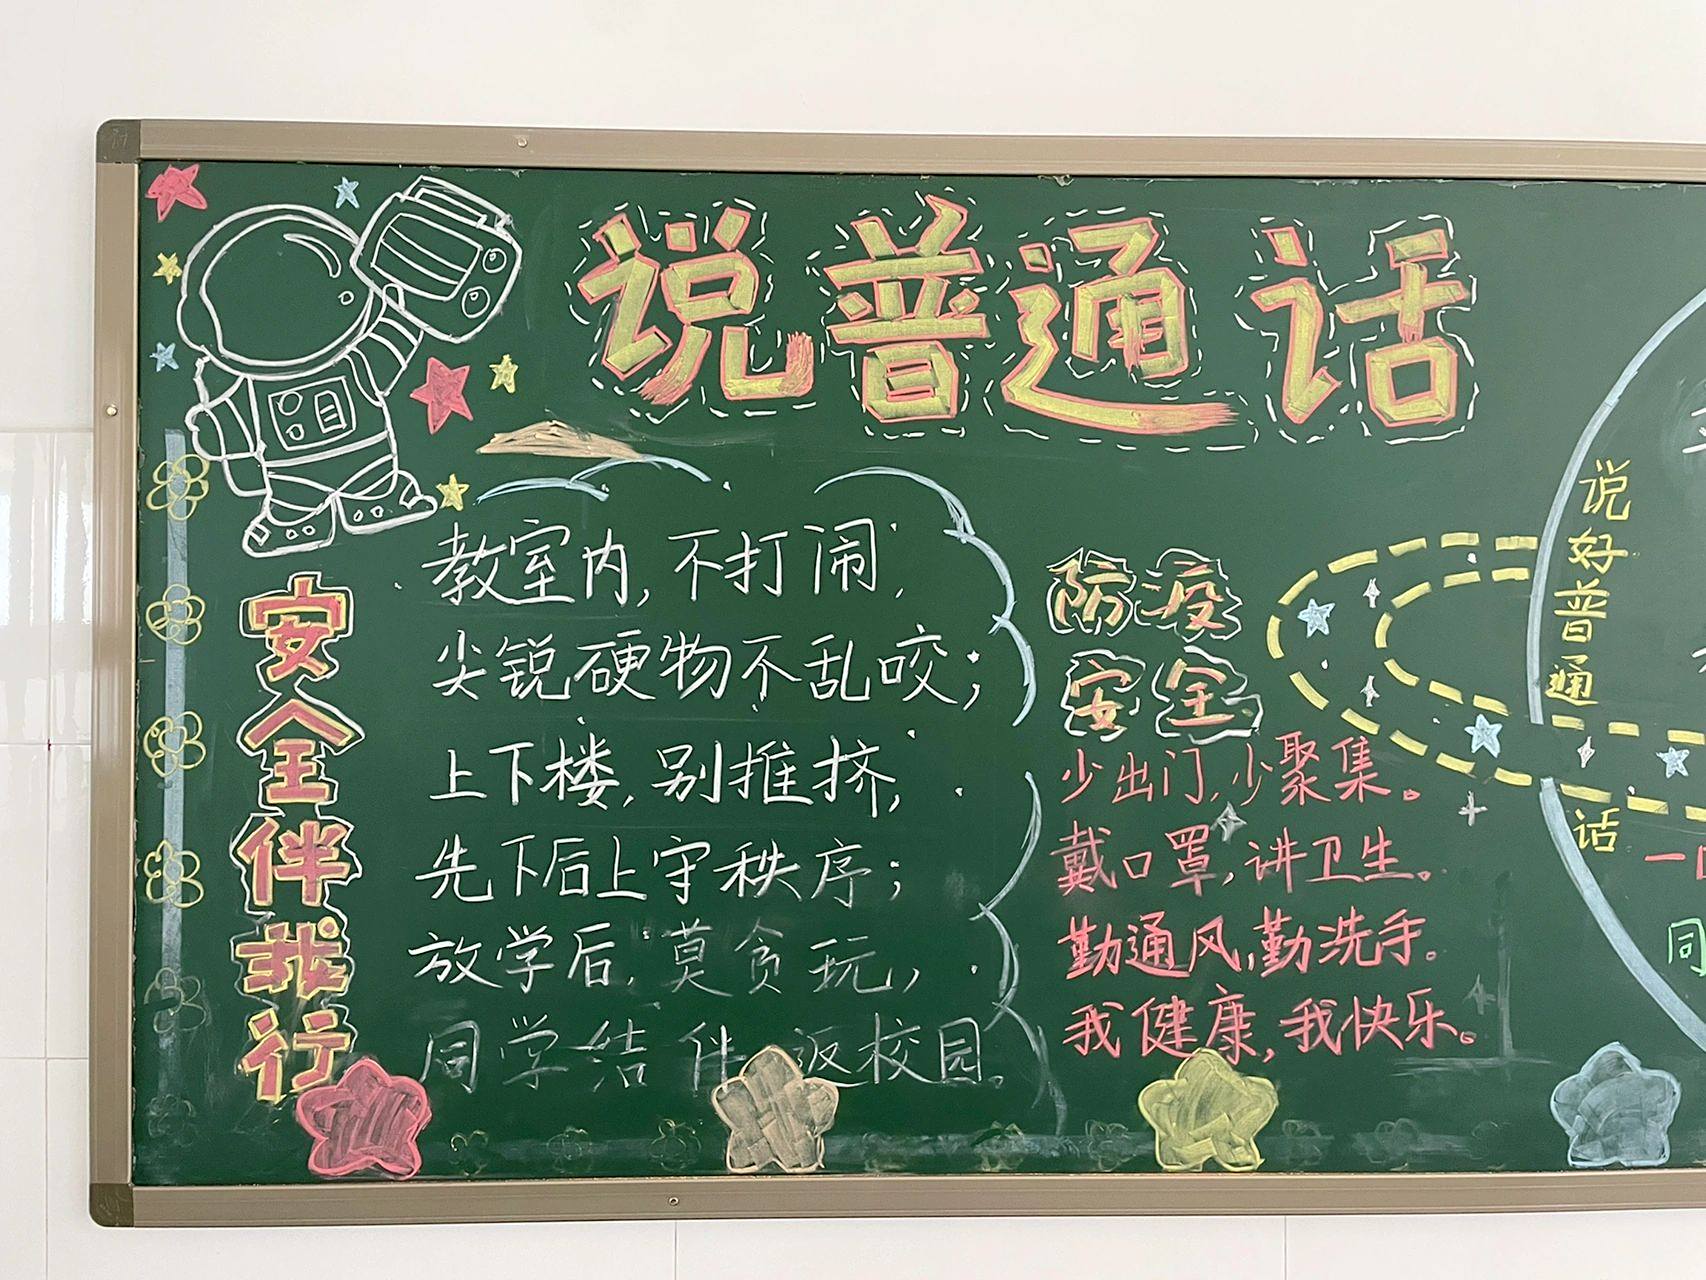 说普通话
安全伴我行
教室内,不打闹,
尖锐硬物不乱咬;
上下楼,别推挤,
先下后上守秩序;
放学后,莫贪玩,
同学结伴返校园。
防疫
安全
少出门,少聚集。
戴口罩,讲卫生。
勤通风,勤洗手。
我健康,我快乐。
说好普通话
同